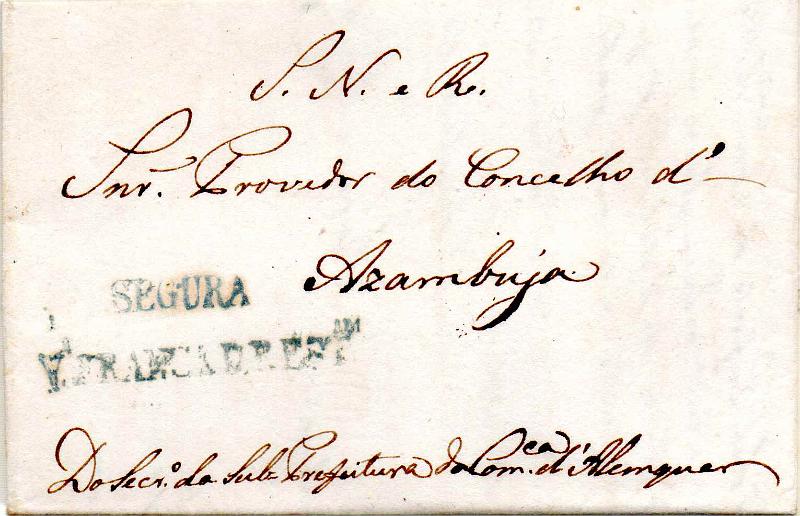 S. N. e R.
Snr. Provedor do Concelho d'
Azambuja
SEGURA
Do Secr.º da Sub Prefeitura da Com.ca d'Alemquer